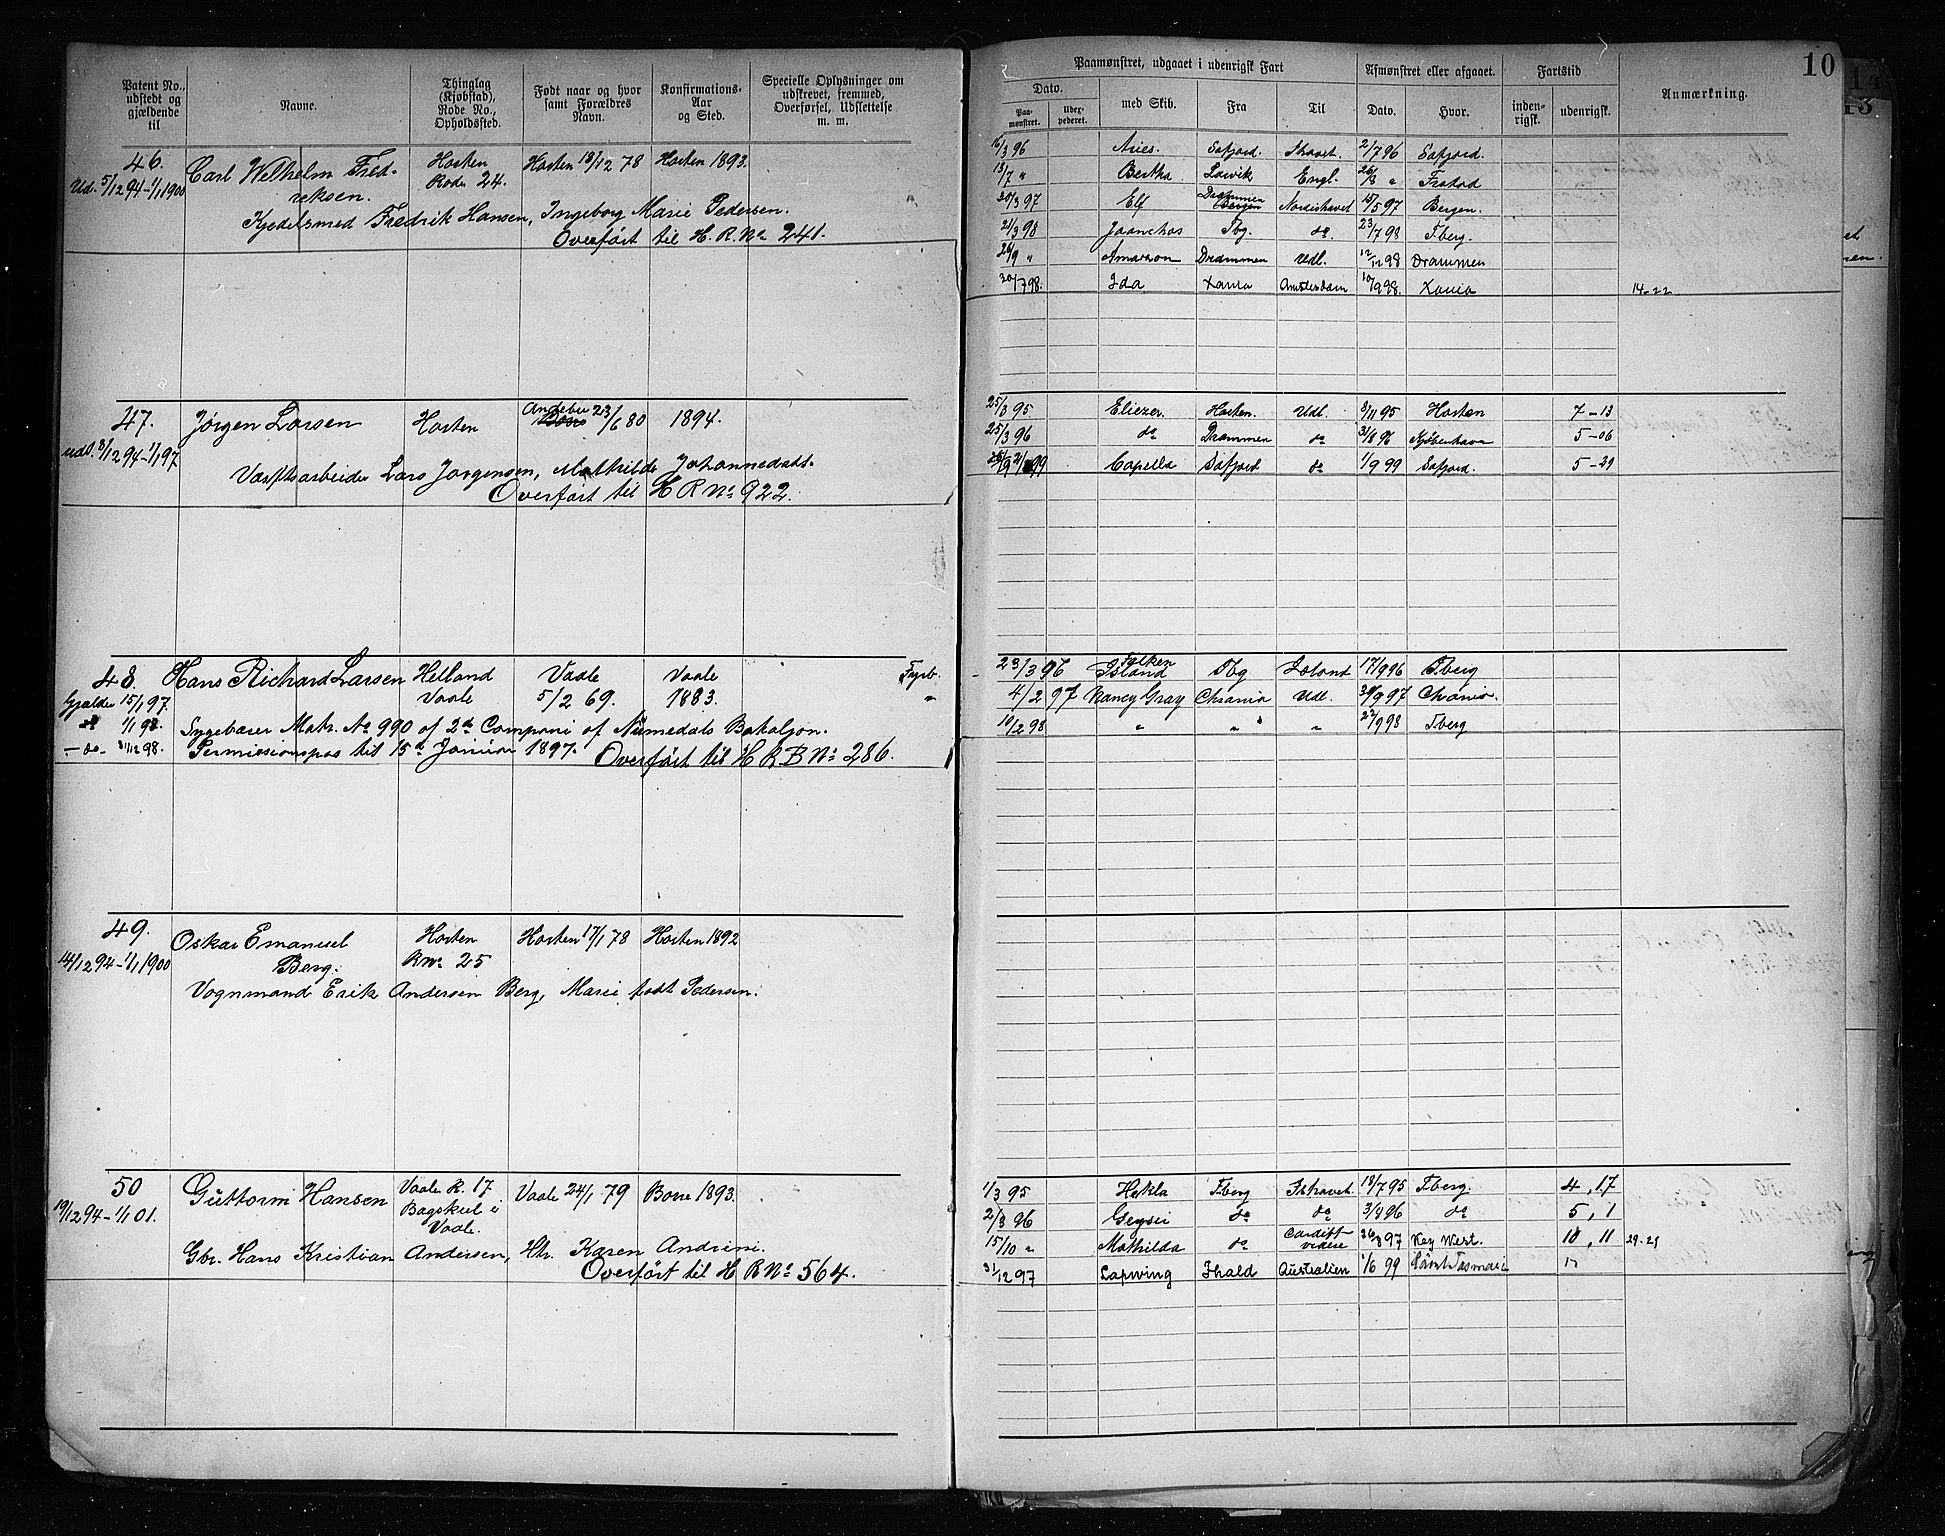 Patent No., udstedt og gjældende til
Navne.
Thinglag (Kjøbstad), Rode No., Opholdssted.
Født naar og hvor samt Forældres Navn.
Konfirmations-Aar og Sted.
Specielle Oplysninger om udskrevet, fremmed, Overførsel, Udslettelse m. m.
46. Carl Wilhelm Fred- Horten Horten 18/12 78 Horten 1893.
Udl. 5/12 94-1/1 1900 reksen. Rode 24.
Kjedelsmed Fredrik Hansen, Ingeborg Marie Pedersen.
Overført til H. R. No 241.
47. Jørgen Larsen Horten Andebu 23/6 80 1894.
udl. 8/12 94-1/1 97
Værftsarbeider Lars Jørgensen, Mathilde Johannesdatt.
Overført til H R No 922.
48. Hans Richard Larsen Helland Vaale Vaale Fyrb.
Gjælder 15/1 97. Vaale 5/2 69. 1883. "
do 1/1 98. Ingebærer Matr. No 990 of 2d Compani of Numedals Bataljon.
- do - 31/12 98. Permissionspas til 15de Januar 1897. Overført til H R B No 286.
49. Oskar Emanuel Horten Horten 17/1 78 Horten 1892
14/12 94-1/1 1900 Berg. R No 25
Vognmand Erik Andersen Berg, Marie født Pedersen.
50 Guttorm Hansen Vaale R. 17 Vaale 24/1 79 Borre 1893.
19/12 94-1/1 01. Bagskul i
Vaale.
Gbr. Hans Kristian Andersen, Htr. Karen Andrini.
Overført til H R No 564.
10
Paamønstret, udgaaet i udenrigsk Fart
Afmønstret eller afgaaet.
Fartstid
Anmærkning.
Dato.
Paa-mønstret.
Udex-pederet.
med Skib.
Fra
Til
Dato.
Hvor.
inden-rigsk.
udenrigsk.
16/3 96 Aries. Safjord. Ishavet. 2/7 96 Safjord.
13/7 " Bertha Larvik Engl. 26/8 " Frstad
20/3 97 Elf Drammen Nordishavet 15/5 97 Bergen.
21/3 98 Tbg. do 23/7 98 Tberg.
26/9 " Amazon Drammen Udl. 12/12 98 Drammen
30/7 98. Ida Xania Amsterdam 10/9 98. Xania 14-22
25/3 95 Eliezer. Horten. Udl. 8/11 95 Horten 7-13
25/3 96 do Drammen do 31/8 96 Kjøbenhavn 5-06
Capella Safjord do 1/9 99 Safjord. 5-29
23/3 96 Falken Island Tbg Island 17/9 96 Tberg
4/2 97 Nancy Gray Chrania Udl. 30/9 97 Chrania.
10/2 98 " " " " 27/9 98 Tberg
1/3 95 Hekla Tberg Ishavet. 18/7 95 Tberg. 4, 17
2/3 96 Geysir do do 3/8 96 do 5, 1
15/10 " Mathilda do Cardiff videre 26/8 97 Key West. 10, 11 29-29
31/12 97 Lapwing Fhald Australien 1/6 99 17